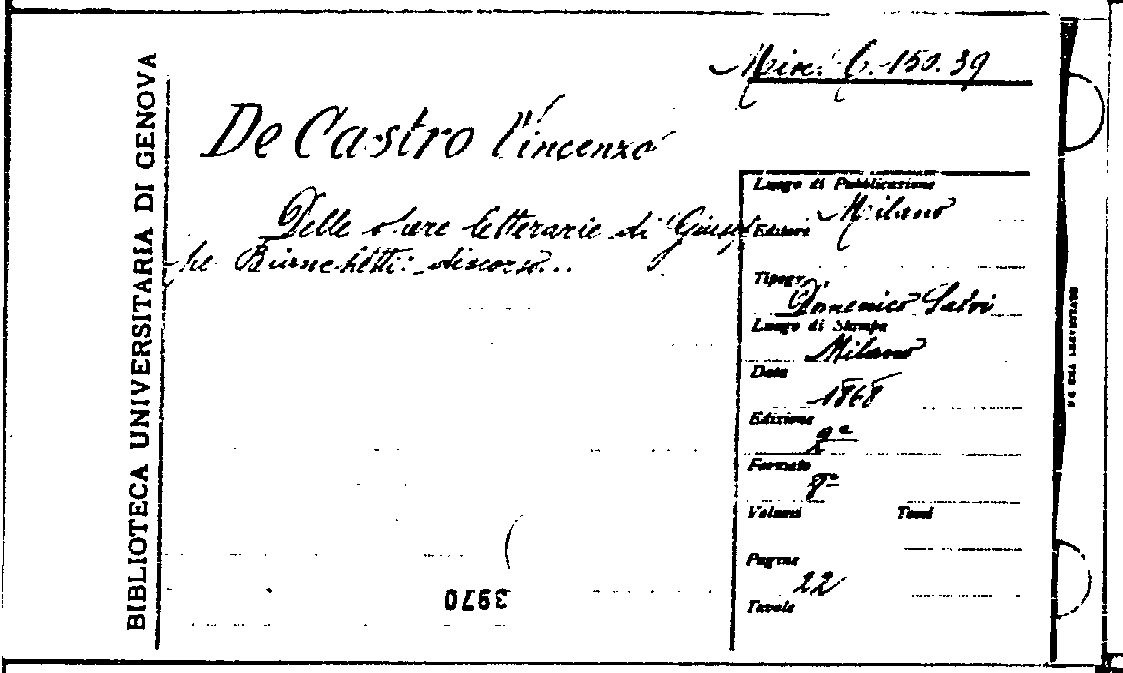 BIBLIOTECA UNIVERSITARIA DI GENOVA
Misc. C. 150. 39
De Castro Vincenzo
Delle opere letterarie di Giusep-
pe Bianchetti: discorso...
Luogo di Pubblicazione
Milano
Editori
Tipogr.
Domenico Salvi
Luogo di Stampa
Milano
Data
1868
Edizione
2ª
Formato
8°
Volumi Tomi
Pagine
22
Tavole
3970